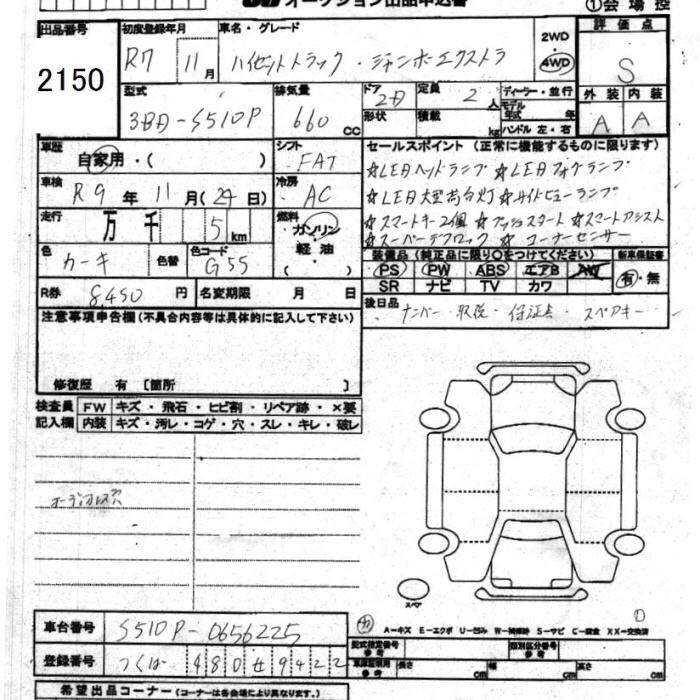 オークション出品申込書 ①会場控
出品番号 初度登録年月 車名・グレード 2WD 評価点
2150 R7 11月 ハイゼットトラック・ジャンボエクストラ 4WD S
型式 排気量 ドア 定員 ディーラー・並行 外装 内装
3BD-S510P 660cc 2D 2人 モデル年式 年 A A
形状 積載 kg ハンドル 左・右
車歴 シフト セールスポイント（正常に機能するものに限ります）
自家用・( ) FAT ☆LEDヘッドランプ ☆LEDフォグランプ
車検 冷房 ☆LED大型荷台灯 ☆サイドビューランプ
R9年11月(24日) AC ☆スマートキー2個 ☆プッシュスタート ☆スマートアシスト
走行 万 千 5km 燃料 ガソリン・軽油・( ) ☆スーパーデフロック ☆コーナーセンサー
色 カーキ 色替 色コード G55 装備品（純正品に限り○をつけてください） 新車保証書
PS PW ABS エアB AW 有・無
SR ナビ TV カワ
R券 8,450円 名変期限 月 日 後日品
ナンバー・取説・保証書・スペアキー
注意事項申告欄（不具合内容等は具体的に記入して下さい）
修復歴 有 〔箇所 〕
検査員 FW キズ・飛石・ヒビ割・リペア跡・×要
記入欄 内装 キズ・汚レ・コゲ・穴・スレ・キレ・破レ
オーディオレス
スペア
車台番号 S510P-0656225
A-キズ E-エクボ U-凹ミ W-補修跡 S-サビ C-腐食 XX-交換済
型式指定番号 参考 類別区分番号 参考
登録番号 つくば 480 せ 9422
車庫証明用 参考 長さ cm 幅 cm 高さ cm
希望出品コーナー（コーナーは各会場により異なります。）